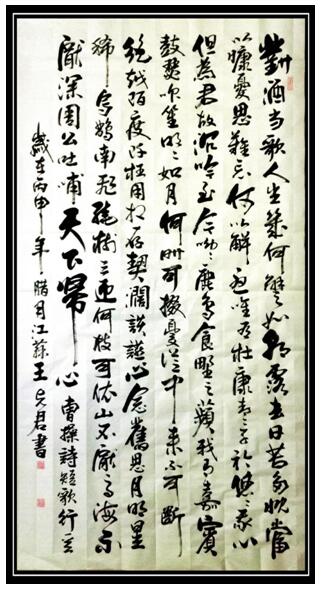 對酒當歌人生幾何譬如朝露去日苦多慨當
以慷憂思難忘何以解憂唯有杜康青々子衿悠々我心
但為君故沉吟至今呦々鹿鳴食野之蘋我有嘉賓
鼓瑟吹笙明々如月何時可掇憂從中來不可斷
絕越陌度阡枉用相存契闊談讌心念舊恩月明星
稀烏鵲南飛繞樹三匝何枝可依山不厭高海不
厭深周公吐哺天下歸心曹操詩短歌行
歲在丙申年臘月江蘇王君書